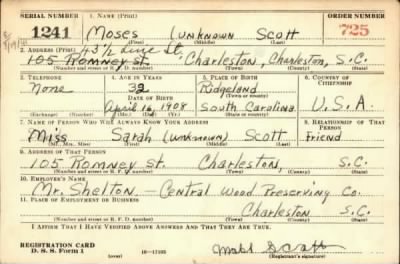 SERIAL NUMBER 1. NAME (Print) ORDER NUMBER
1241 Moses (UNKNOWN) Scott 725
(First) (Middle) (Last)
2. ADDRESS (Print) 43½ Line St.
105 Romney St. Charleston, Charleston, S.C.
(Number and street or R. F. D. number) (Town) (County) (State)
3. TELEPHONE 4. AGE IN YEARS 5. PLACE OF BIRTH 6. COUNTRY OF CITIZENSHIP
None 32 Ridgeland
DATE OF BIRTH (Town or county)
April 16, 1908 South Carolina U.S.A.
(Exchange) (Number) (Mo.) (Day) (Yr.) (State or country)
7. NAME OF PERSON WHO WILL ALWAYS KNOW YOUR ADDRESS 8. RELATIONSHIP OF THAT PERSON
Miss Sarah (unknown) Scott Friend
(Mr., Mrs., Miss) (First) (Middle) (Last)
9. ADDRESS OF THAT PERSON
105 Romney St. Charleston, S.C.
(Number and street or R. F. D. number) (Town) (County) (State)
10. EMPLOYER'S NAME
Mr. Shelton - Central Wood Preserving Co.
11. PLACE OF EMPLOYMENT OR BUSINESS
Charleston S.C.
(Number and street or R. F. D. number) (Town) (County) (State)
I AFFIRM THAT I HAVE VERIFIED ABOVE ANSWERS AND THAT THEY ARE TRUE.
REGISTRATION CARD
D. S. S. Form 1 (over) Scott
(Registrant's signature)